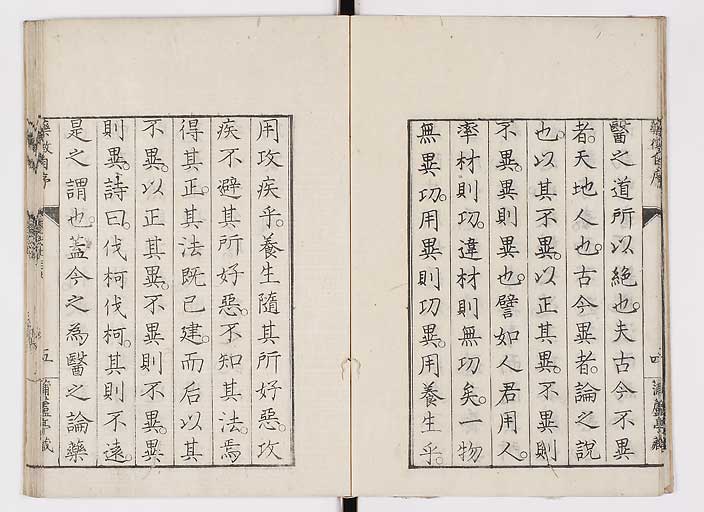 醫之道所以絶也。夫古今不異
者。天地人也。古今異者。論之説
也。以其不異。以正其異。不異則
不異。異則異也。譬如人君用人。
率材則功。違材則無功矣。一物
無異功。用異則功異。用養生乎。
用攻疾乎。養生隨其所好惡。攻
疾不避其所好惡。不知其法。焉
得其正。其法既已建。而后以其
不異。以正其異。不異則不異。異
則異。詩曰。伐柯伐柯。其則不遠。
是之謂也。蓋今之為醫之論藥
五